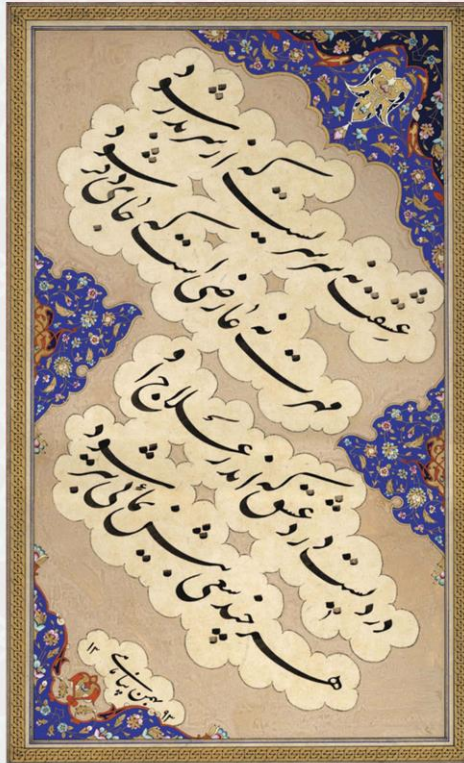 عشقت نه سرسریست که از سر بدر شود
مهرت نه عارضی است که جای دگر شود
دردیست درد عشق که اندر علاج او
هر چند سعی بیش نمائی بتر شود
بهمن پناهی